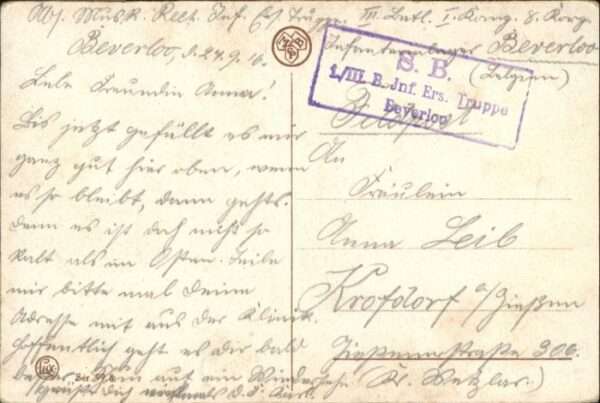 Abs. Musk. Rect. Inf. Ers. Truppe III. Batl. I. Komp. 8. Korp.
Beverloo, d. 27.9.16.
Infanterielager Beverloo
(Belgien)
S. B.
1./III. B. Jnf. Ers. Truppe
Beverloo
Feldpost
Liebe Freundin Anna!
Bis jetzt gefüllt es mir
ganz gut hier oben, wenn
es so bleibt, dann gehts.
Denn es ist doch nicht so
kalt als im Osten. Teile
mir bitte mal Deine
Adresse mit aus der Klinik.
Hoffentlich geht es dir bald
besser. auf ein Wiedersehn
grüßt Dich nochmals D. F.
An
Fräulein
Anna Leib
Krofdorf a/Gießen
Gießenerstraße 306.
(Kr. Wetzlar.)